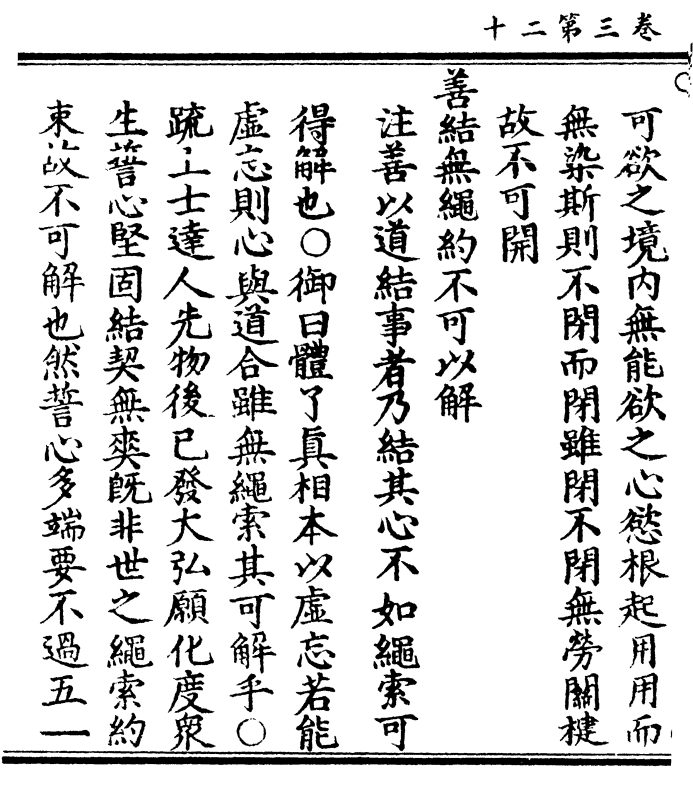 卷三第二十
可欲之境內無能欲之心慾根起用用而
無染斯則不閉而閉雖閉不閉無勞關楗
故不可開
善結無繩約不可以解
注善以道結事者乃結其心不如繩索可
得解也○御曰體了真相本以虛忘若能
虛忘則心與道合雖無繩索其可解乎○
疏上士達人先物後已發大弘願化度衆
生誓心堅固結契無爽旣非世之繩索約
束故不可解也然誓心多端要不過五一